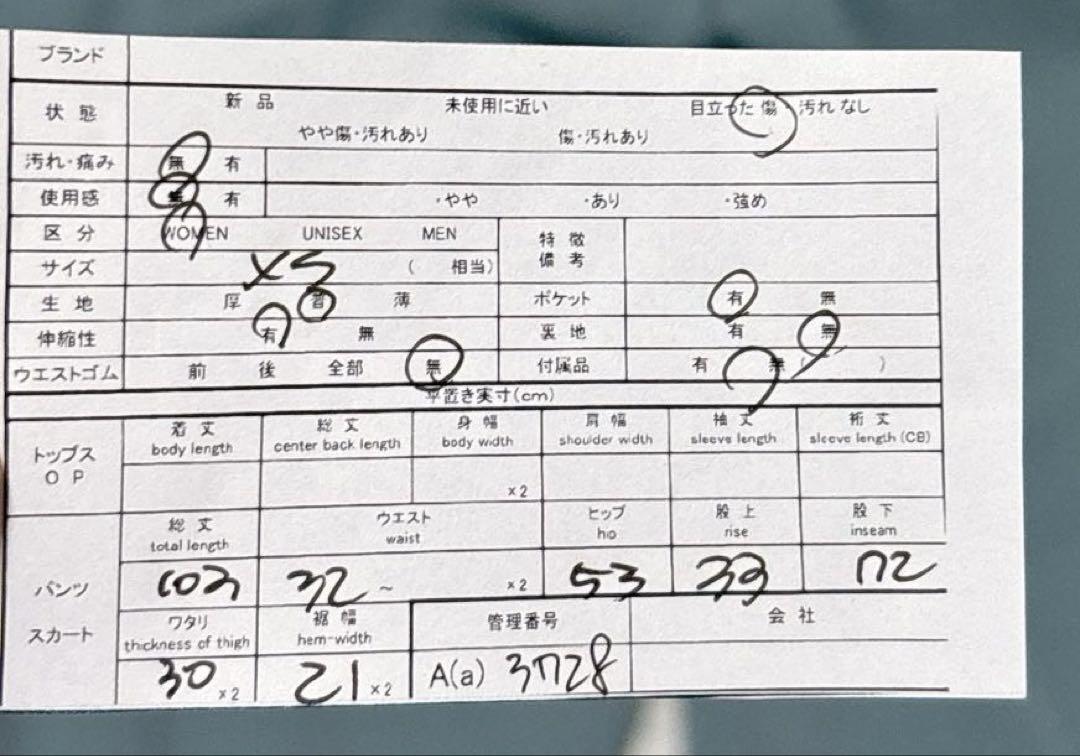 ブランド
状態 新品 未使用に近い 目立った傷・汚れなし
やや傷・汚れあり 傷・汚れあり
汚れ・痛み 無 有
使用感 無 有 ・やや ・あり ・強め
区分 WOMEN UNISEX MEN 特徴
備考
サイズ XS ( 相当)
生地 厚 普 薄 ポケット 有 無
伸縮性 有 無 裏地 有 無
ウエストゴム 前 後 全部 無 付属品 有 無 ( )
平置き実寸(cm)
トップス
OP
着丈 総丈 身幅 肩幅 袖丈 裄丈
body length center back length body width shoulder width sleeve length sleeve length (CB)
×2
パンツ
スカート
総丈 ウエスト ヒップ 股上 股下
total length waist hip rise inseam
103 32 ~ ×2 53 33 72
ワタリ 裾幅 管理番号 会社
thickness of thigh hem-width
30 ×2 21 ×2 A(a) 3728